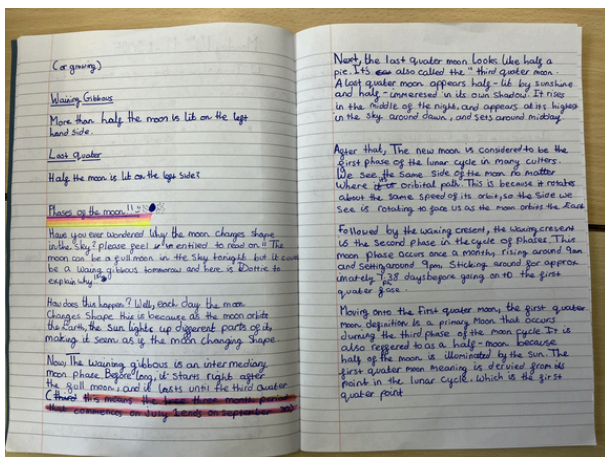 (or growing)
Waining Gibbous
More than half the moon is lit on the left
hand side.
Last Quater
Half the moon is lit on the left side?
Phases of the moon!!
Have you ever wondered why the moon changes shape
in the sky? please feel in entised to read on. The
moon can be a full moon in the sky tonight but it could
be a waing gibbous tomorrow and here is Dottie to
explain why!
How does this happen? Well, each day the moon
Changes Shape this is because as the moon orbits
the Earth, the sun lights up different parts of it,
making it seem as if the moon changing Shape
Now, The waining gibbous is an intermediary
moon phase. Before long, it starts right after
the full moon, and it lasts until the third quater
(third this means the three month period
that commences on July & ends on September
Next, the last quater moon looks like half a
pie. It's also called the "third quater moon.
A last quater moon appears half-lit by sunshine
and half-immeresed in its own shadow. It rises
in the middle of the night, and appears at its highest
in the sky around dawn, and sets around midday.
After that, The new moon is considered to be the
first phase of the lunar cycle in many culters.
We see the same side of the moon no matter
where it is oribital path. This is because it rotates
about the same speed of its orbit, so the side we
see is rotating to face us as the moon orbits the Ease
Followed by the waxing cresent, the waxing cresent
is the Second phase in the cycle of phases. This
moon phase occurs once a monthy, rising around 9am
and setting around 9pm. Sticking around for approx
imately 7.38 days before going on to the first
quater fase.
Moving onto the First quater moon, the first quater
moon definition is a primary Moon that occurs
durning the third phase of the moon cycle. It is
also reffered to as a half-moon because
half of the moon is illuminated by the Sun. The
first quater moon meaning is dervied from its
point in the lunar cycle. Which is the first
quater point